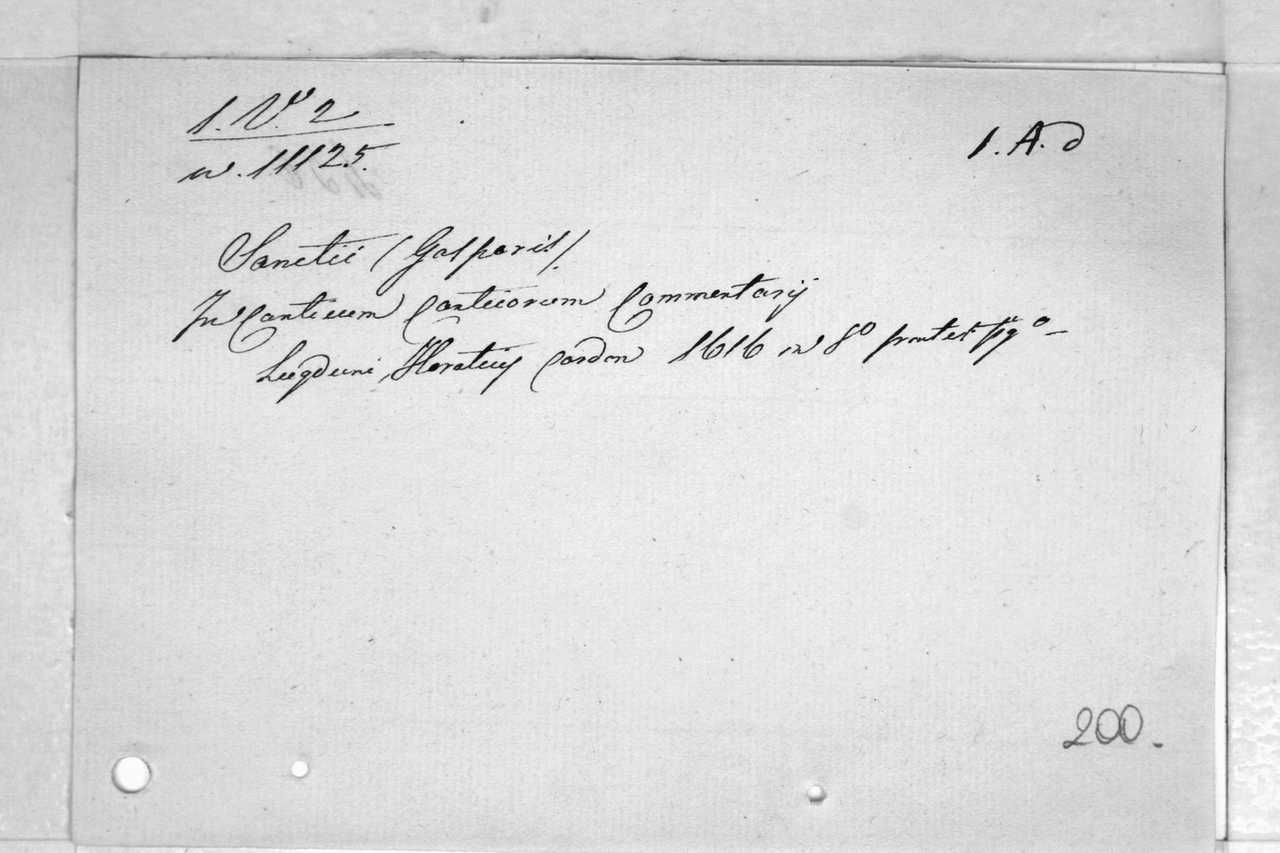 1. Vº. 2
1. A. d
n. 11125.
Sanctii (Gasparis).
In Canticum Canticorum Commentarij
Lugduni, Horatius Cardon 1616 in 8º
200.